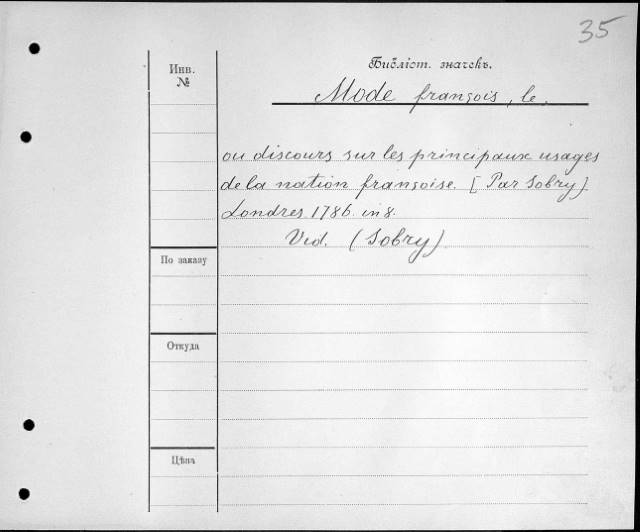 35
Библіот. значекъ.
Инв.
№
Mode françois, le.
ou discours sur les principaux usages
de la nation françoise. [Par Sobry)
Londres 1786. in 8.
Vid. (Sobry)
По заказу
Откуда
Цѣна